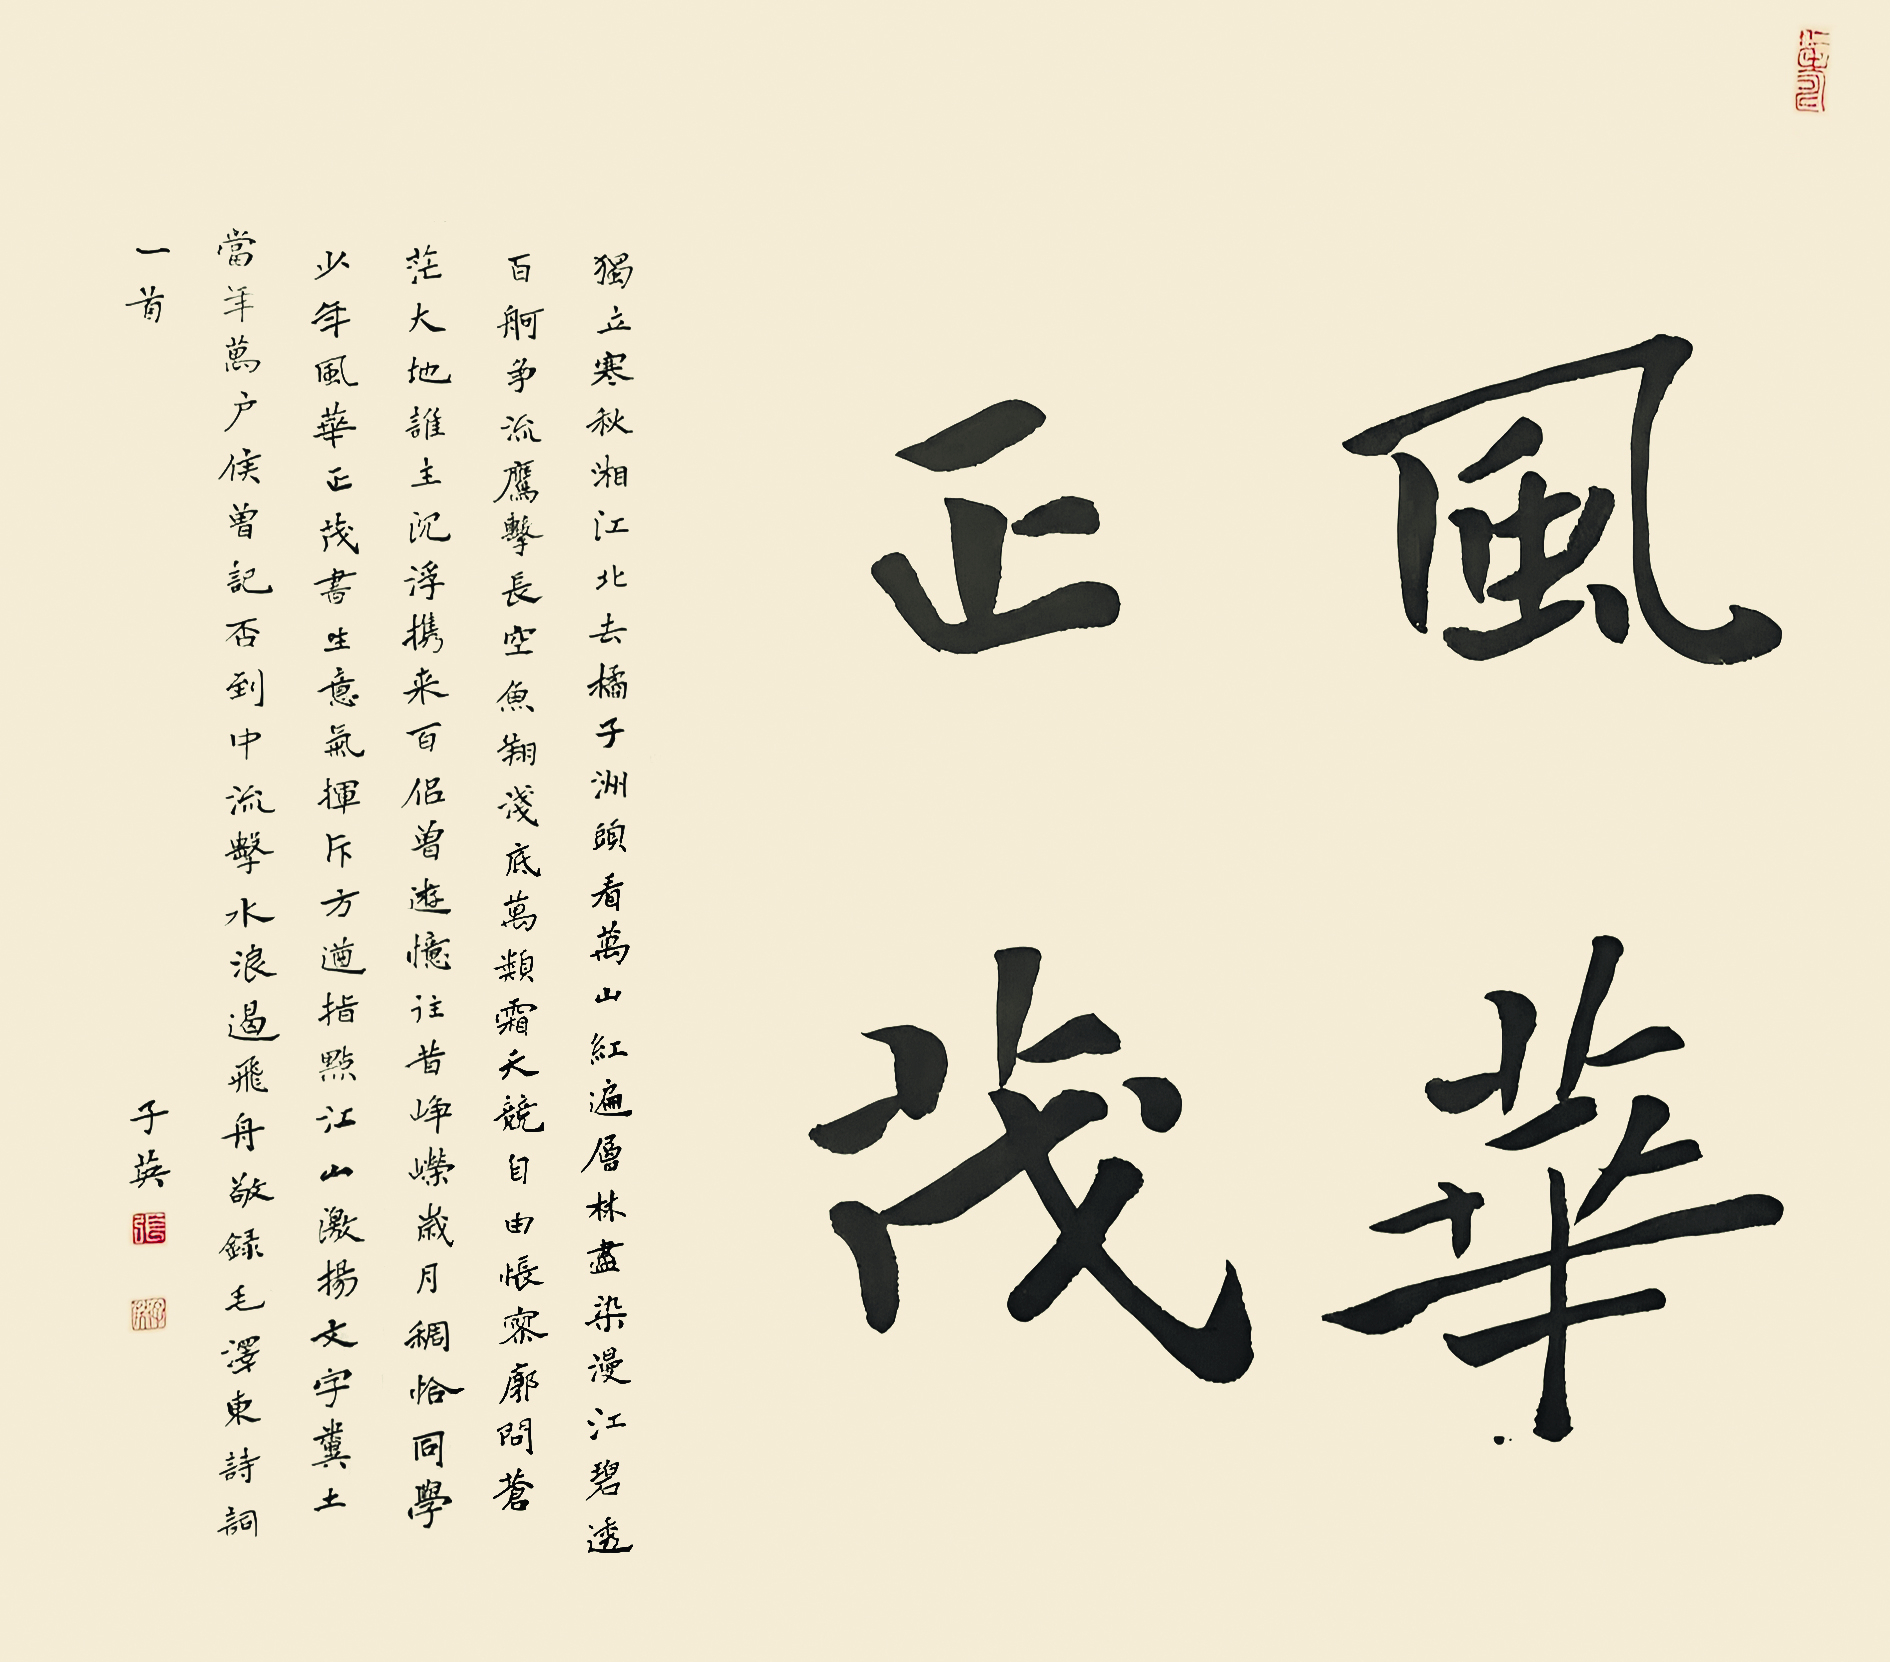 風華
正茂
獨立寒秋湘江北去橘子洲頭看萬山紅遍層林盡染漫江碧透
百舸争流鷹擊長空魚翔淺底萬類霜天競自由悵寥廓問蒼
茫大地誰主沉浮携来百侣曾遊憶往昔崢嶸歲月稠恰同學
少年風華正茂書生意氣揮斥方遒指點江山激揚文字糞土
當年萬户侯曾記否到中流擊水浪遏飛舟敬録毛澤東詩詞
一首
子英